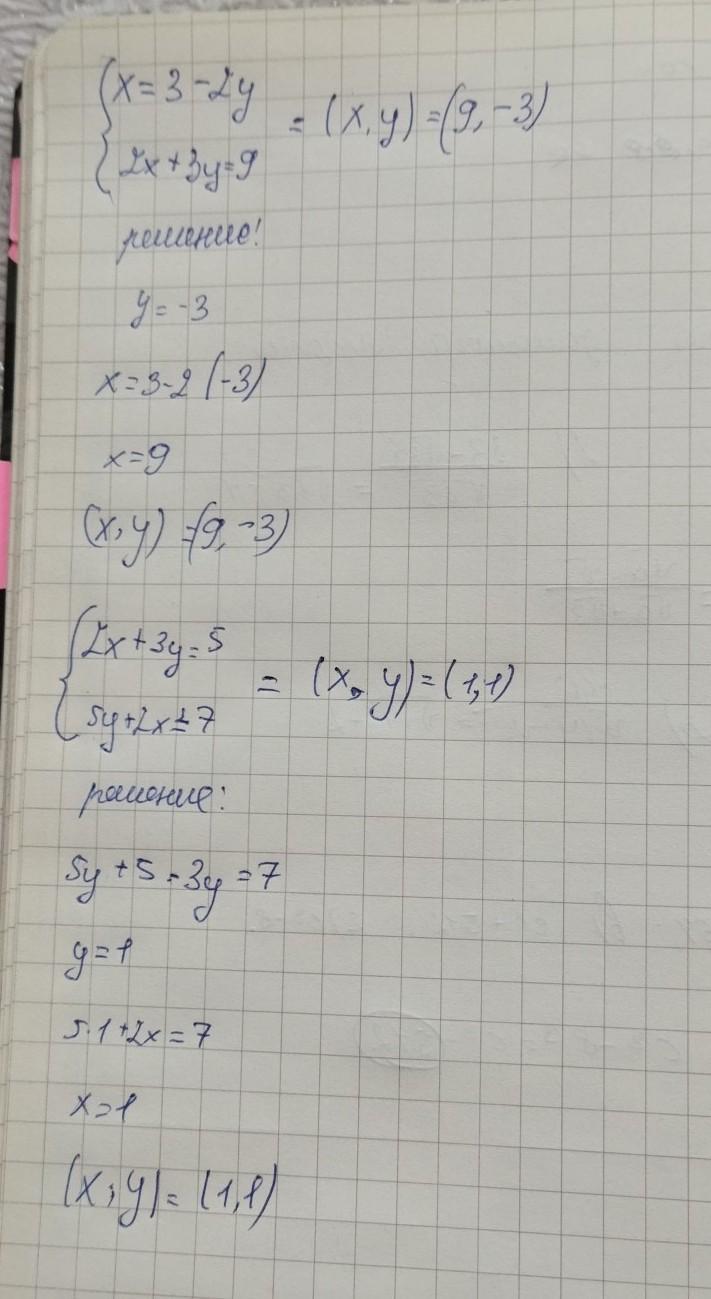 x = 3 - 2y
= (x, y) = (9, -3)
2x + 3y = 9
решение!
y = -3
x = 3 - 2 (-3)
x = 9
(x, y) = (9, -3)
2x + 3y = 5
= (x, y) = (1,1)
5y + 2x = 7
решение:
5y + 5 - 3y = 7
y = 1
5·1 + 2x = 7
x = 1
(x, y) = (1,1)